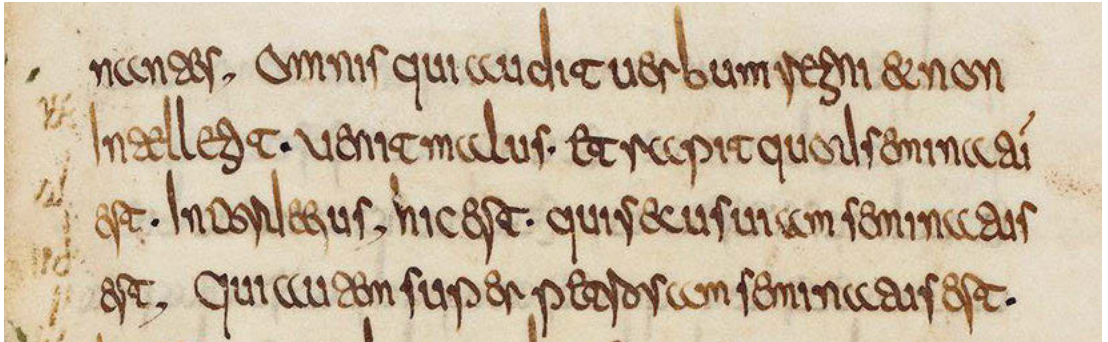 nantes, Omnis qui audit uerbum regni & non
Intellegit. uenit malus. Et rapit quod seminatū
est. In corde eius, hic est. qui secus uiam seminatus
est, Qui autem super petrosam seminatus est.